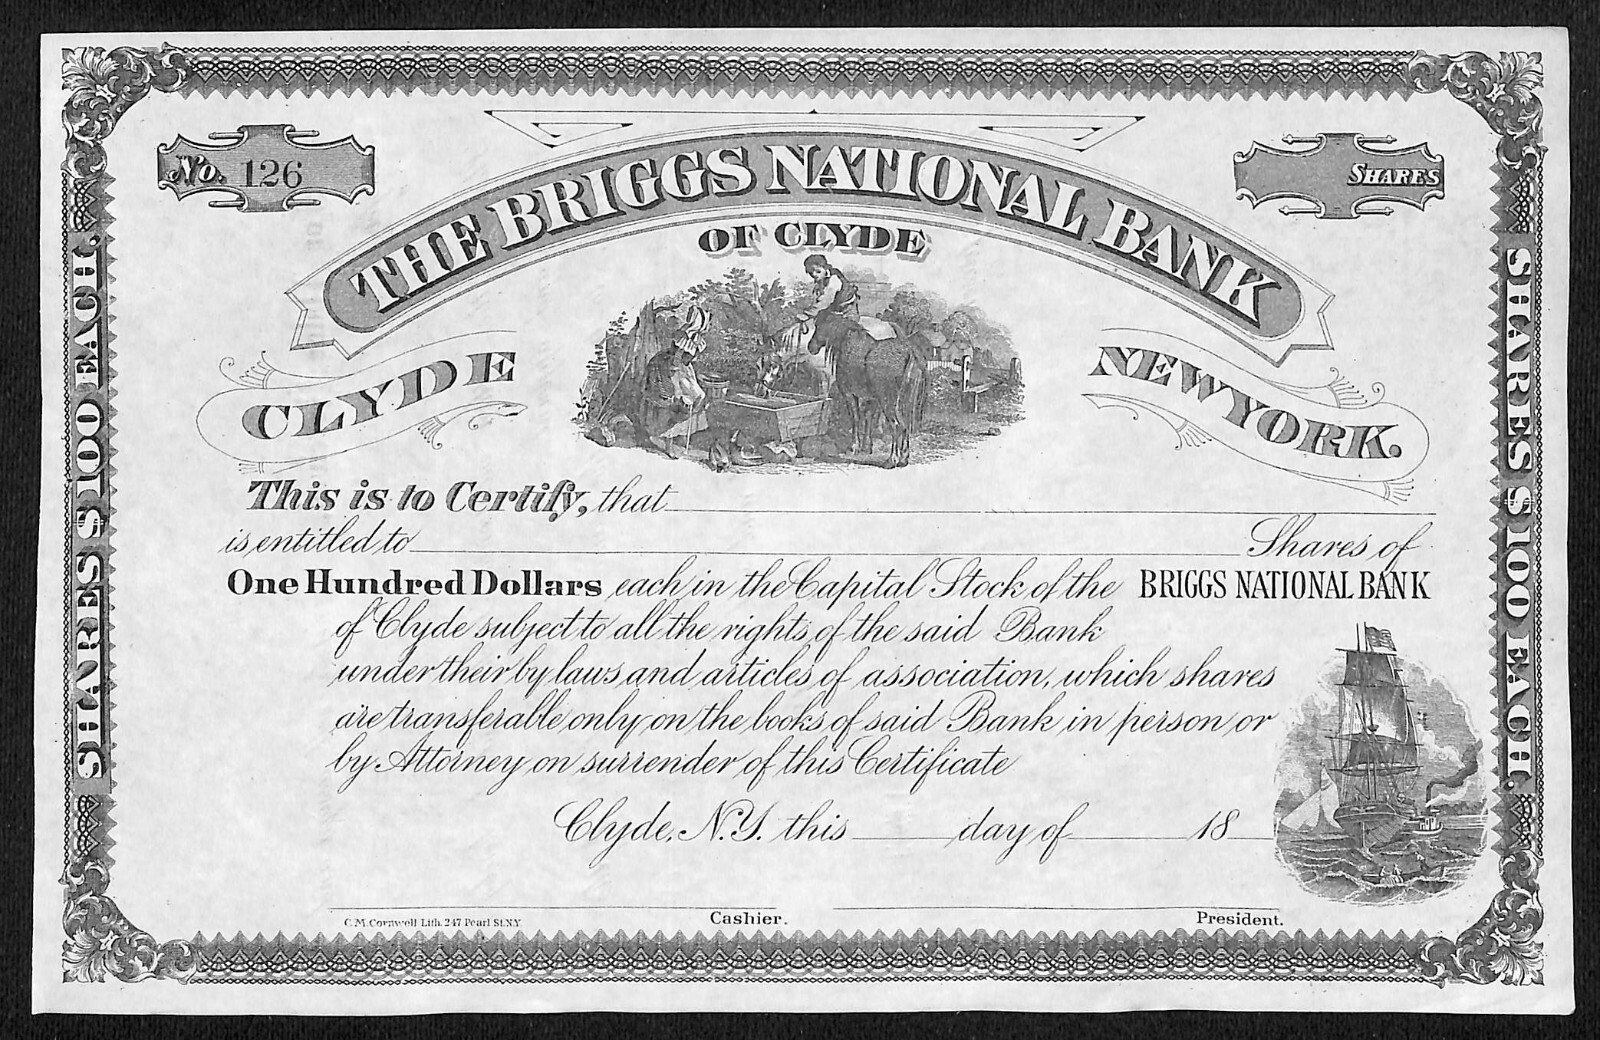 No. 126
SHARES
THE BRIGGS NATIONAL BANK
OF CLYDE
CLYDE
NEW YORK.
SHARES $100 EACH.
SHARES $100 EACH.
This is to Certify, that
is entitled to Shares of
One Hundred Dollars each in the Capital Stock of the BRIGGS NATIONAL BANK
of Clyde subject to all the rights of the said Bank
under their by laws and articles of association, which shares
are transferable only on the books of said Bank in person or
by Attorney on surrender of this Certificate
Clyde, N.Y. this day of 18
Cashier.
President.
C. M. Cornwell Lith. 247 Pearl St. N.Y.